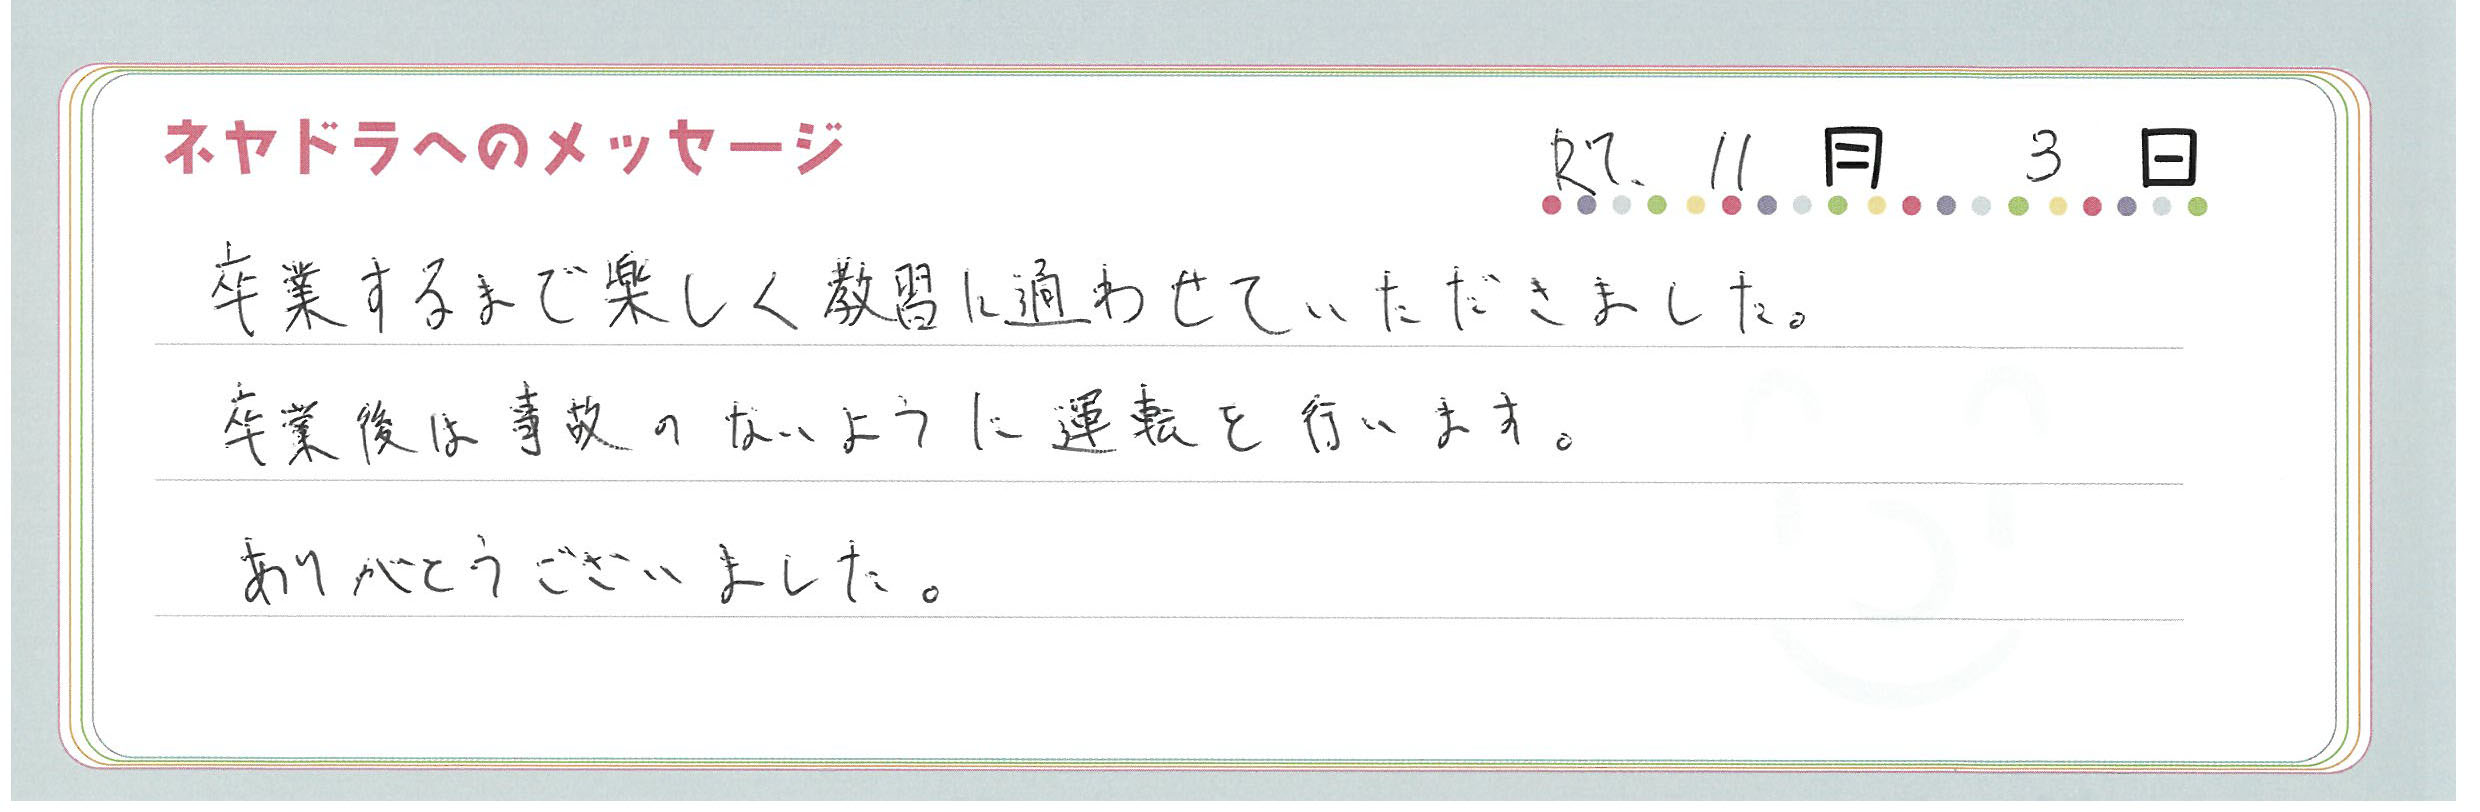 ネヤドラへのメッセージ
R7. 11月 3日
卒業するまで楽しく教習に通わせていただきました。
卒業後は事故のないように運転を行います。
ありがとうございました。